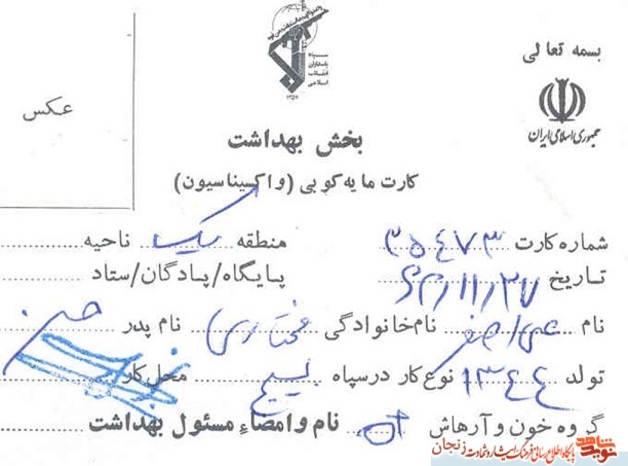 بسمه تعالی
جمهوری اسلامی ایران
سپاه
پاسداران
انقلاب
اسلامی
عکس
بخش بهداشت
کارت مایه کوبی (واکسیناسیون)
شماره کارت ۳۵۴۷۳ منطقه یک ناحیه
تاریخ ۶۲/۱۱/۲۷ پایگاه/پادگان/ستاد
نام علی اصغر نام خانوادگی مختاری نام پدر حسن
تولد ۱۳۴۴ نوع کار در سپاه بسیج محل کار
گروه خون و آرهاش نام و امضاء مسئول بهداشت
نوید شاهد
پایگاه اطلاع رسانی فرهنگ ایثار و شهادت زنجان